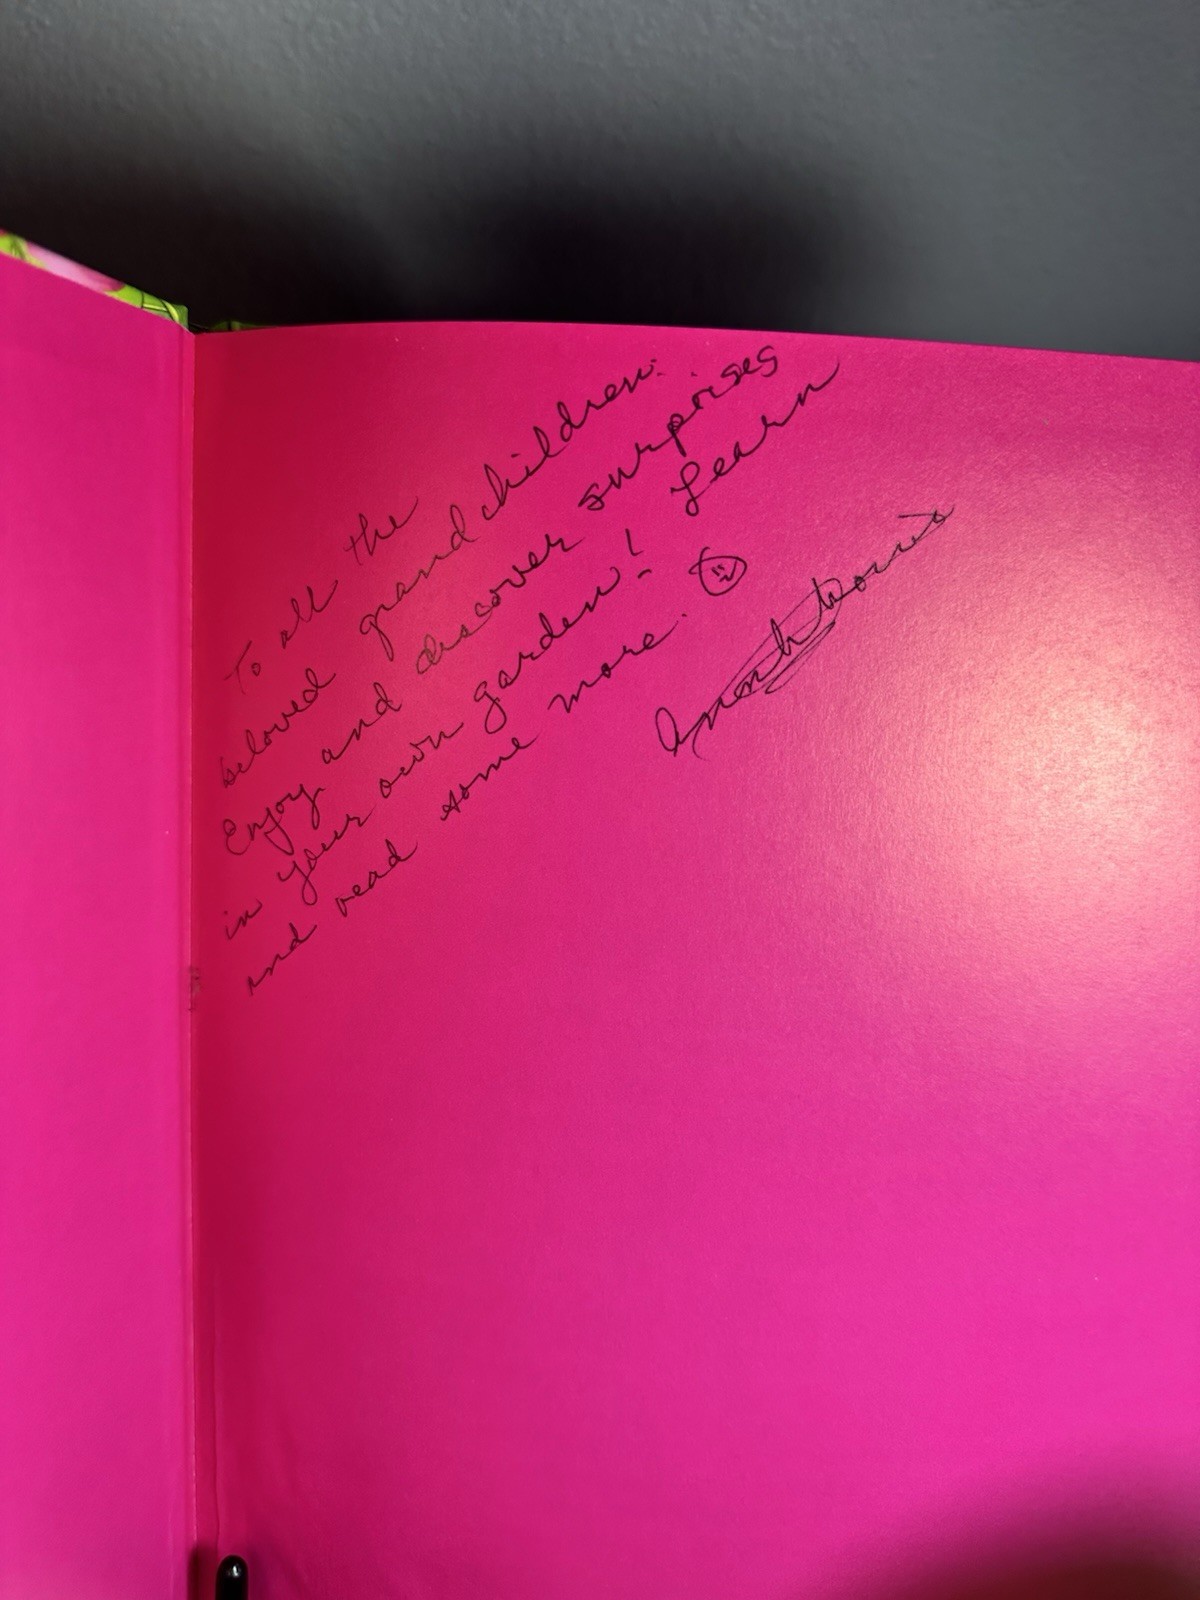 To all the
beloved grandchildren:
Enjoy and discover surprises
in your own garden! Learn
and read some more.